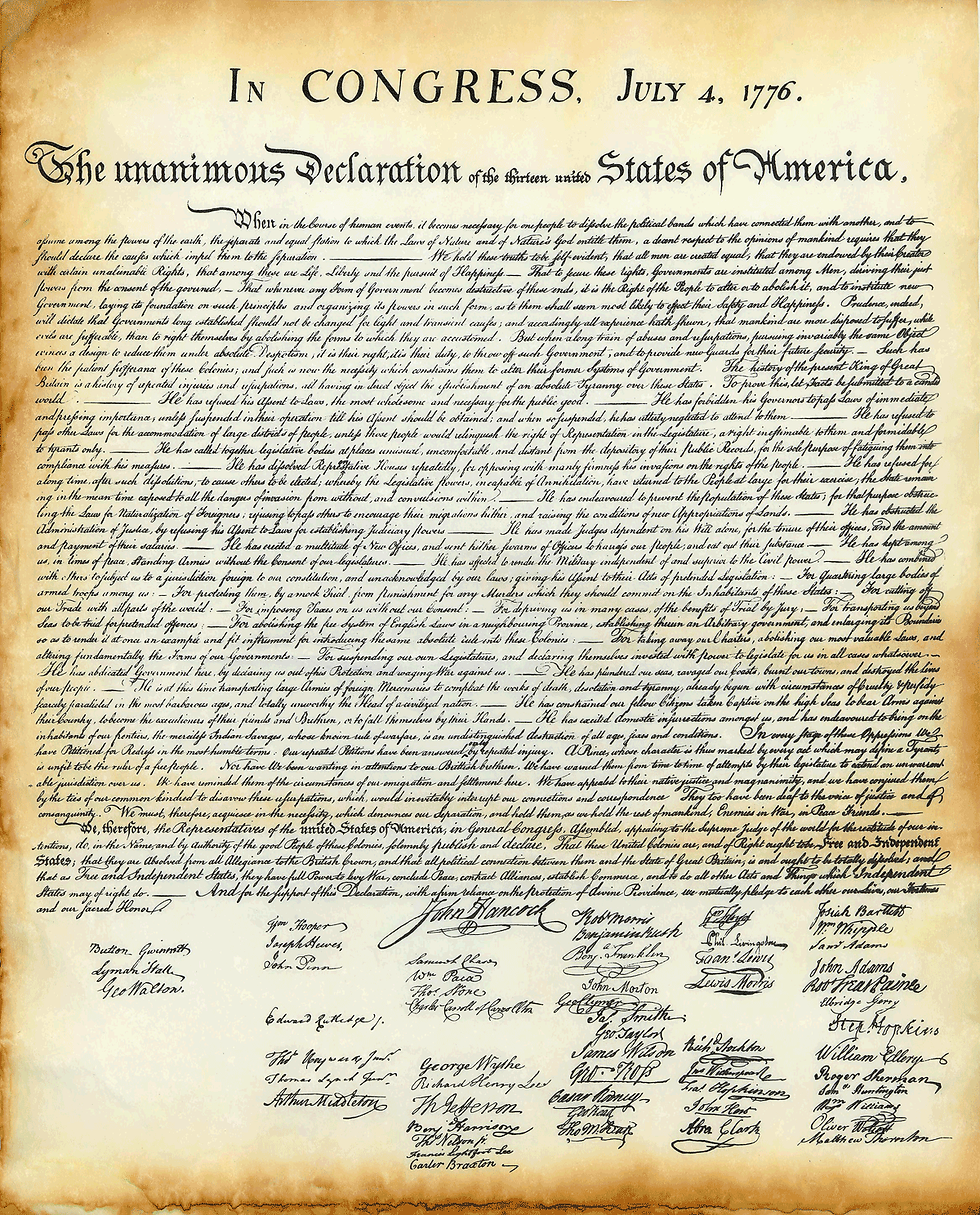 In CONGRESS, July 4, 1776.
The unanimous Declaration of the thirteen united States of America,
When in the Course of human events, it becomes necessary for one people to dissolve the political bands which have connected them with another, and to
assume among the powers of the earth, the separate and equal station to which the Laws of Nature and of Nature's God entitle them, a decent respect to the opinions of mankind requires that they
should declare the causes which impel them to the separation. We hold these truths to be self-evident, that all men are created equal, that they are endowed by their Creator
with certain unalienable Rights, that among these are Life, Liberty and the pursuit of Happiness — That to secure these rights, Governments are instituted among Men, deriving their just
powers from the consent of the governed, — That whenever any Form of Government becomes destructive of these ends, it is the Right of the People to alter or to abolish it, and to institute new
Government, laying its foundation on such principles and organizing its powers in such form, as to them shall seem most likely to effect their Safety and Happiness. Prudence, indeed,
will dictate that Governments long established should not be changed for light and transient causes; and accordingly all experience hath shewn, that mankind are more disposed to suffer, while
evils are sufferable, than to right themselves by abolishing the forms to which they are accustomed. But when a long train of abuses and usurpations, pursuing invariably the same Object
evinces a design to reduce them under absolute Despotism, it is their right, it is their duty, to throw off such Government, and to provide new Guards for their future security. — Such has
been the patient sufferance of these Colonies; and such is now the necessity which constrains them to alter their former Systems of Government. The history of the present King of Great
Britain is a history of repeated injuries and usurpations, all having in direct object the establishment of an absolute Tyranny over these States. To prove this, let Facts be submitted to a candid
world. He has refused his Assent to Laws, the most wholesome and necessary for the public good. He has forbidden his Governors to pass Laws of immediate
and pressing importance, unless suspended in their operation till his Assent should be obtained; and when so suspended, he has utterly neglected to attend to them. He has refused to
pass other Laws for the accommodation of large districts of people, unless those people would relinquish the right of Representation in the Legislature, a right inestimable to them and formidable
to tyrants only. He has called together legislative bodies at places unusual, uncomfortable, and distant from the depository of their public Records, for the sole purpose of fatiguing them into
compliance with his measures. He has dissolved Representative Houses repeatedly, for opposing with manly firmness his invasions on the rights of the people. He has refused for
a long time, after such dissolutions, to cause others to be elected; whereby the Legislative powers, incapable of Annihilation, have returned to the People at large for their exercise; the State remain
ing in the mean time exposed to all the dangers of invasion from without, and convulsions within. He has endeavoured to prevent the population of these States; for that purpose obstruc
ting the Laws for Naturalization of Foreigners; refusing to pass others to encourage their migrations hither, and raising the conditions of new Appropriations of Lands. He has obstructed the
Administration of Justice, by refusing his Assent to Laws for establishing Judiciary powers. He has made Judges dependent on his Will alone, for the tenure of their offices, and the amount
and payment of their salaries. He has erected a multitude of New Offices, and sent hither swarms of Officers to harrass our people, and eat out their substance. He has kept among
us, in times of peace, Standing Armies without the Consent of our legislatures. He has affected to render the Military independent of and superior to the Civil power. He has combined
with others to subject us to a jurisdiction foreign to our constitution, and unacknowledged by our laws; giving his Assent to their Acts of pretended Legislation: — For Quartering large bodies of
armed troops among us: — For protecting them, by a mock Trial, from punishment for any Murders which they should commit on the Inhabitants of these States: — For cutting off
our Trade with all parts of the world: — For imposing Taxes on us without our Consent: — For depriving us in many cases, of the benefits of Trial by Jury: — For transporting us beyond
Seas to be tried for pretended offences: — For abolishing the free System of English Laws in a neighbouring Province, establishing therein an Arbitrary government, and enlarging its Boundaries
so as to render it at once an example and fit instrument for introducing the same absolute rule into these Colonies: — For taking away our Charters, abolishing our most valuable Laws, and
altering fundamentally the Forms of our Governments: — For suspending our own Legislatures, and declaring themselves invested with power to legislate for us in all cases whatsoever. —
He has abdicated Government here, by declaring us out of his Protection and waging War against us. He has plundered our seas, ravaged our Coasts, burnt our towns, and destroyed the lives
of our people. He is at this time transporting large Armies of foreign Mercenaries to compleat the works of death, desolation and tyranny, already begun with circumstances of Cruelty & perfidy
scarcely paralleled in the most barbarous ages, and totally unworthy the Head of a civilized nation. He has constrained our fellow Citizens taken Captive on the high Seas to bear Arms against
their Country, to become the executioners of their friends and Brethren, or to fall themselves by their Hands. He has excited domestic insurrections amongst us, and has endeavoured to bring on the
inhabitants of our frontiers, the merciless Indian Savages, whose known rule of warfare, is an undistinguished destruction of all ages, sexes and conditions. In every stage of these Oppressions We
have Petitioned for Redress in the most humble terms: Our repeated Petitions have been answered only by repeated injury. A Prince, whose character is thus marked by every act which may define a Tyrant,
is unfit to be the ruler of a free people. Nor have We been wanting in attentions to our Brittish brethren. We have warned them from time to time of attempts by their legislature to extend an unwarrant
able jurisdiction over us. We have reminded them of the circumstances of our emigration and settlement here. We have appealed to their native justice and magnanimity, and we have conjured them
by the ties of our common kindred to disavow these usurpations, which, would inevitably interrupt our connections and correspondence. They too have been deaf to the voice of justice and of
consanguinity. We must, therefore, acquiesce in the necessity, which denounces our Separation, and hold them, as we hold the rest of mankind, Enemies in War, in Peace Friends.
We, therefore, the Representatives of the united States of America, in General Congress, Assembled, appealing to the Supreme Judge of the world for the rectitude of our in-
tentions, do, in the Name, and by Authority of the good People of these Colonies, solemnly publish and declare, That these United Colonies are, and of Right ought to be Free and Independent
States; that they are Absolved from all Allegiance to the British Crown, and that all political connection between them and the State of Great Britain, is and ought to be totally dissolved; and
that as Free and Independent States, they have full Power to levy War, conclude Peace, contract Alliances, establish Commerce, and to do all other Acts and Things which Independent
States may of right do. And for the support of this Declaration, with a firm reliance on the protection of divine Providence, we mutually pledge to each other our Lives, our Fortunes
and our sacred Honor.
Button Gwinnett
Lyman Hall
Geo Walton.
Wm Hooper
Joseph Hewes,
John Penn
Edward Rutledge /.
Thos Heyward Junr.
Thomas Lynch Junr.
Arthur Middleton
John Hancock
Samuel Chase
Wm Paca
Thos Stone
Charles Carroll of Carrollton
George Wythe
Richard Henry Lee
Th Jefferson
Benj Harrison
Thos Nelson jr.
Francis Lightfoot Lee
Carter Braxton
Robt Morris
Benjamin Rush
Benj. Franklin
John Morton
Geo Clymer
Jas. Smith
Geo. Taylor
James Wilson
Geo. Ross
Caesar Rodney
Geo Read
Tho M:Kean
Wm Floyd
Phil. Livingston
Frans. Lewis
Lewis Morris
Richd. Stockton
Jno Witherspoon
Fras. Hopkinson
John Hart
Abra Clark
Josiah Bartlett
Wm. Whipple
Saml Adams
John Adams
Robt Treat Paine
Elbridge Gerry
Step. Hopkins
William Ellery
Roger Sherman
Sam'el Huntington
Wm. Williams
Oliver Wolcott
Matthew Thornton